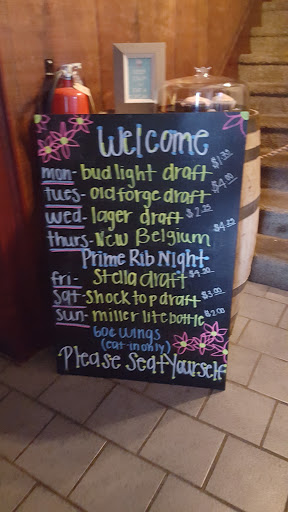 Welcome
mon- bud light draft
tues- old forge draft $4.00
wed- lager draft
thurs- New Belgium
Prime Rib Night
fri- Stella draft
Sat- Shock top draft $3.00
sun- miller lite bottle $2.00
60¢ wings
(eat-in only)
Please Seat Yourself